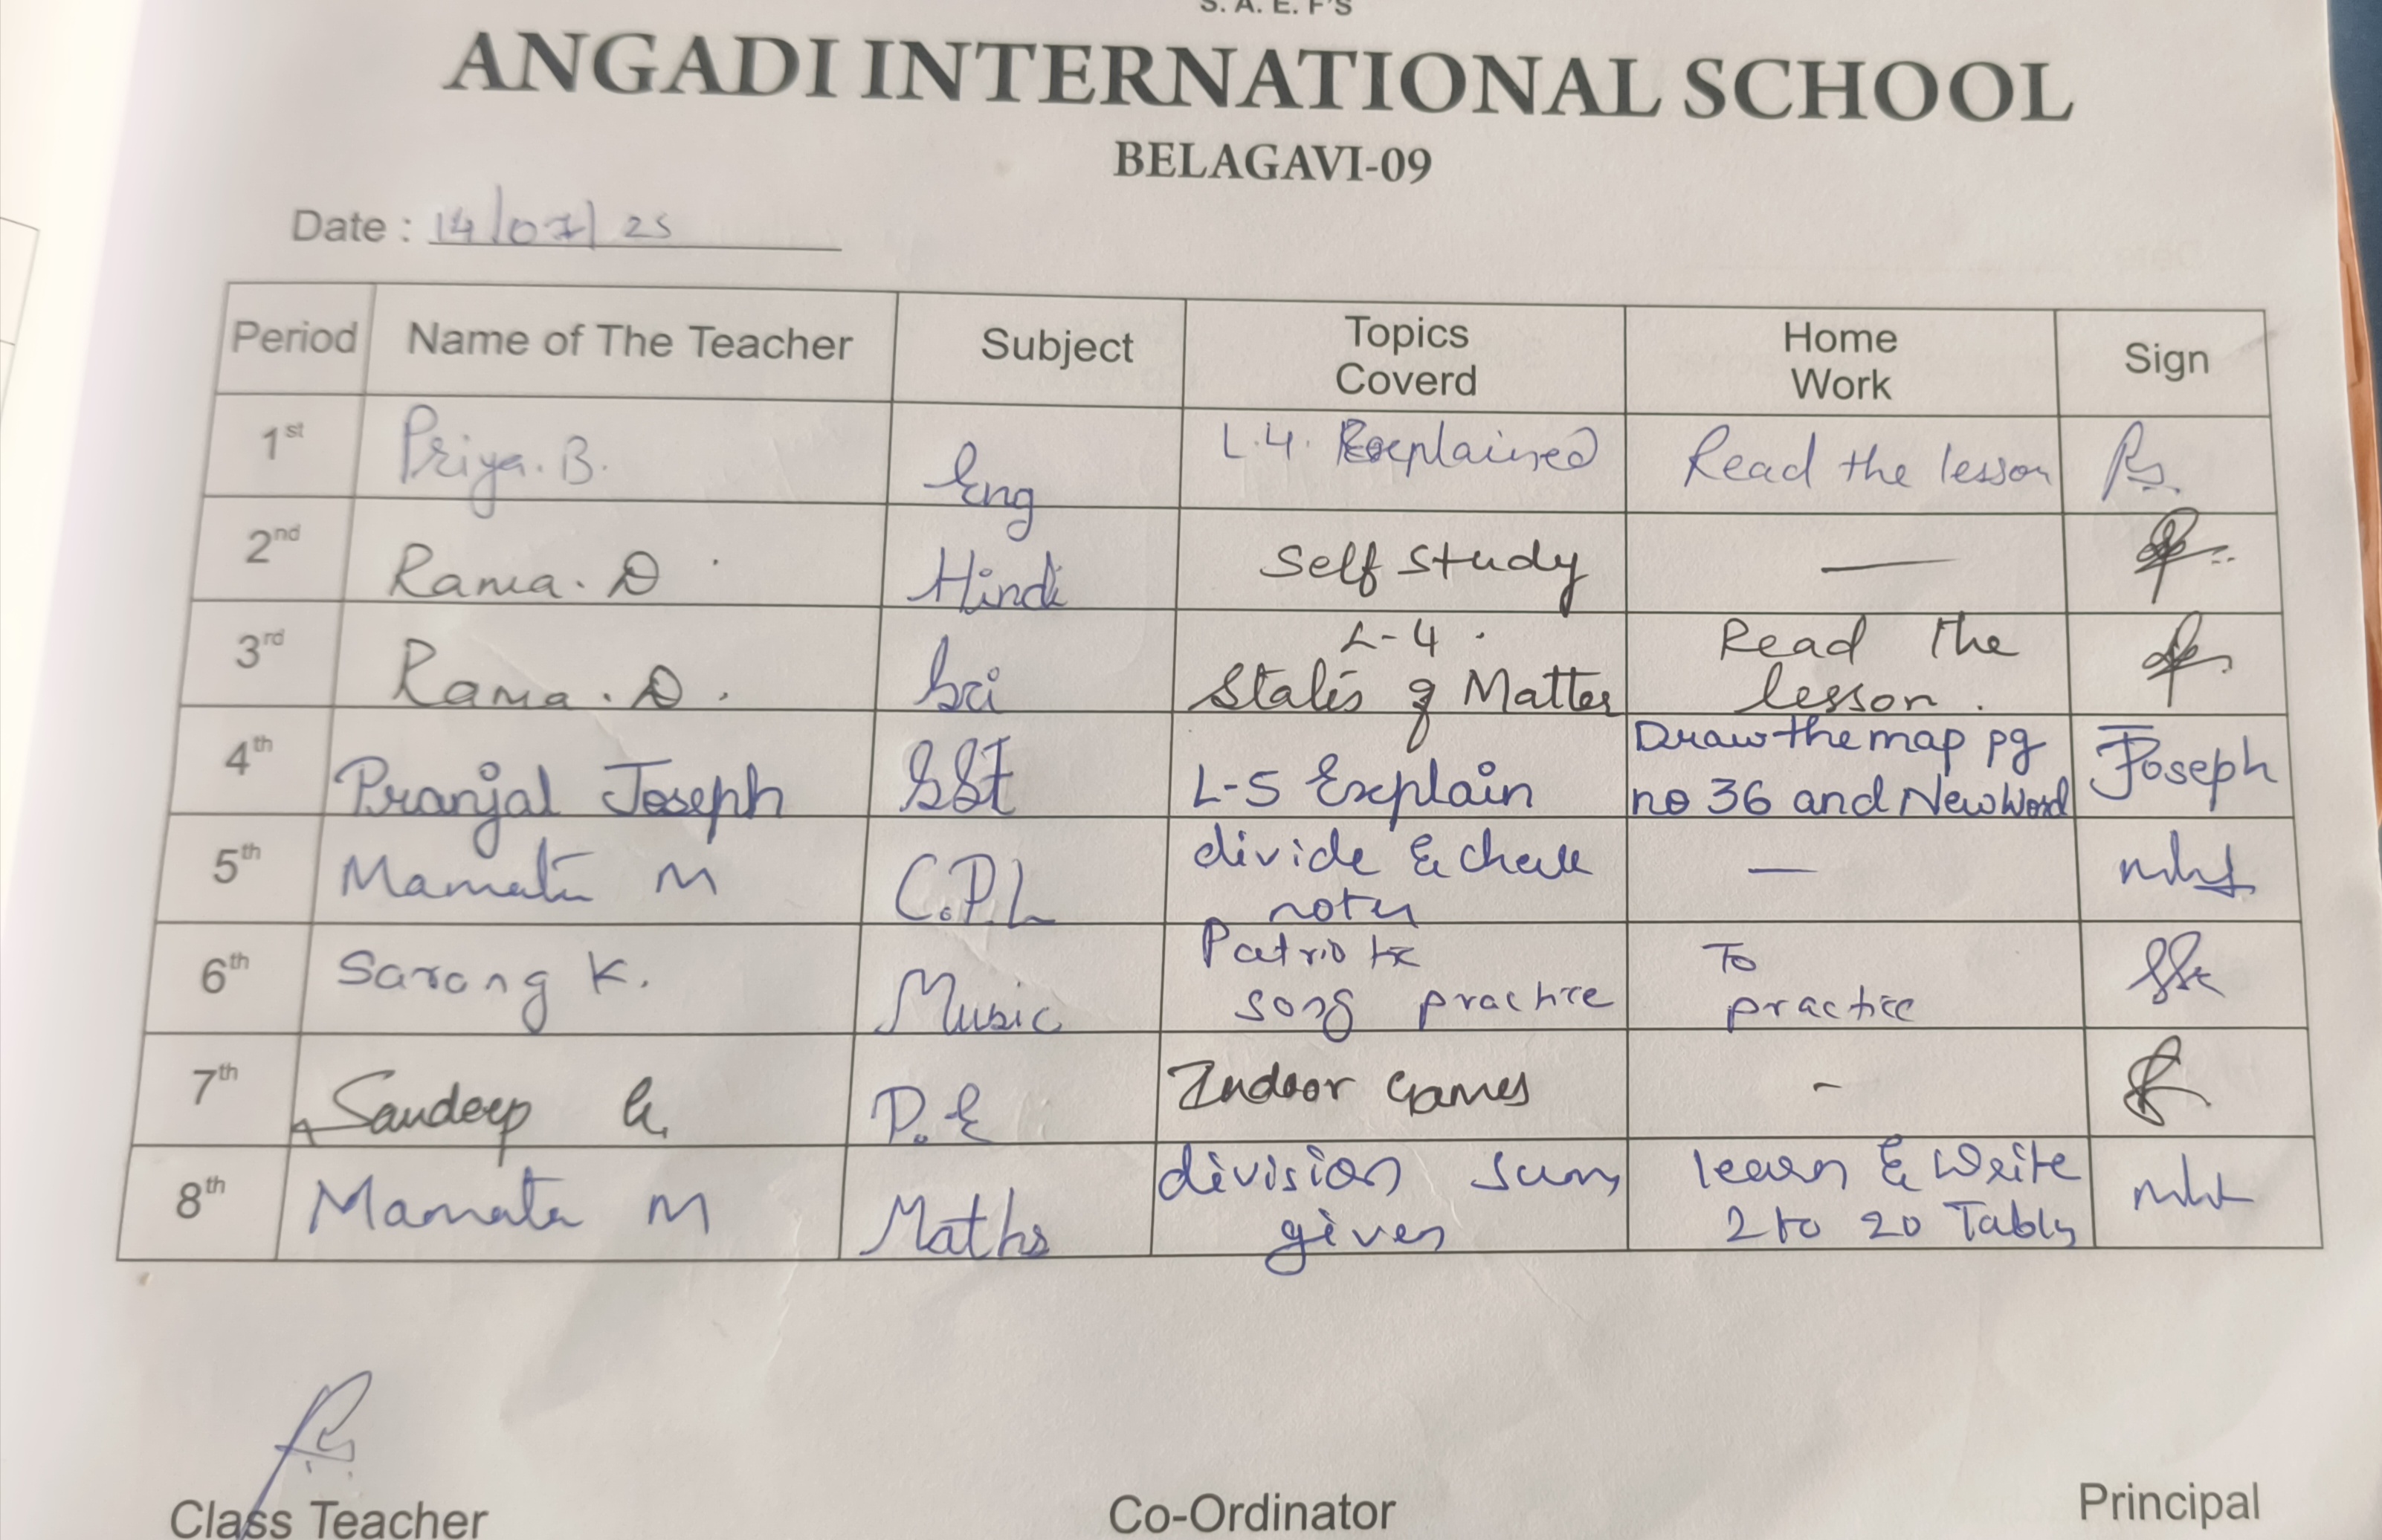 S. A. E. F'S
ANGADI INTERNATIONAL SCHOOL
BELAGAVI-09
Date : 14/07/25
Period Name of The Teacher Subject Topics Coverd Home Work Sign
1st Priya. B. Eng L.4. Explained Read the lesson
2nd Rama. D Hindi Self Study —
3rd Rama. D. Sci L-4. States of Matter Read the lesson.
4th Pranjal Joseph SSt L-5 Explain Draw the map pg no 36 and New Word Joseph
5th Mamata M C.P.L divide & check notes —
6th Sarang K. Music Patriotic song practice To practice
7th Sandeep G. P.E Indoor Games -
8th Mamata M Maths division sums given learn & Write 2 to 20 Tables
Class Teacher Co-Ordinator Principal